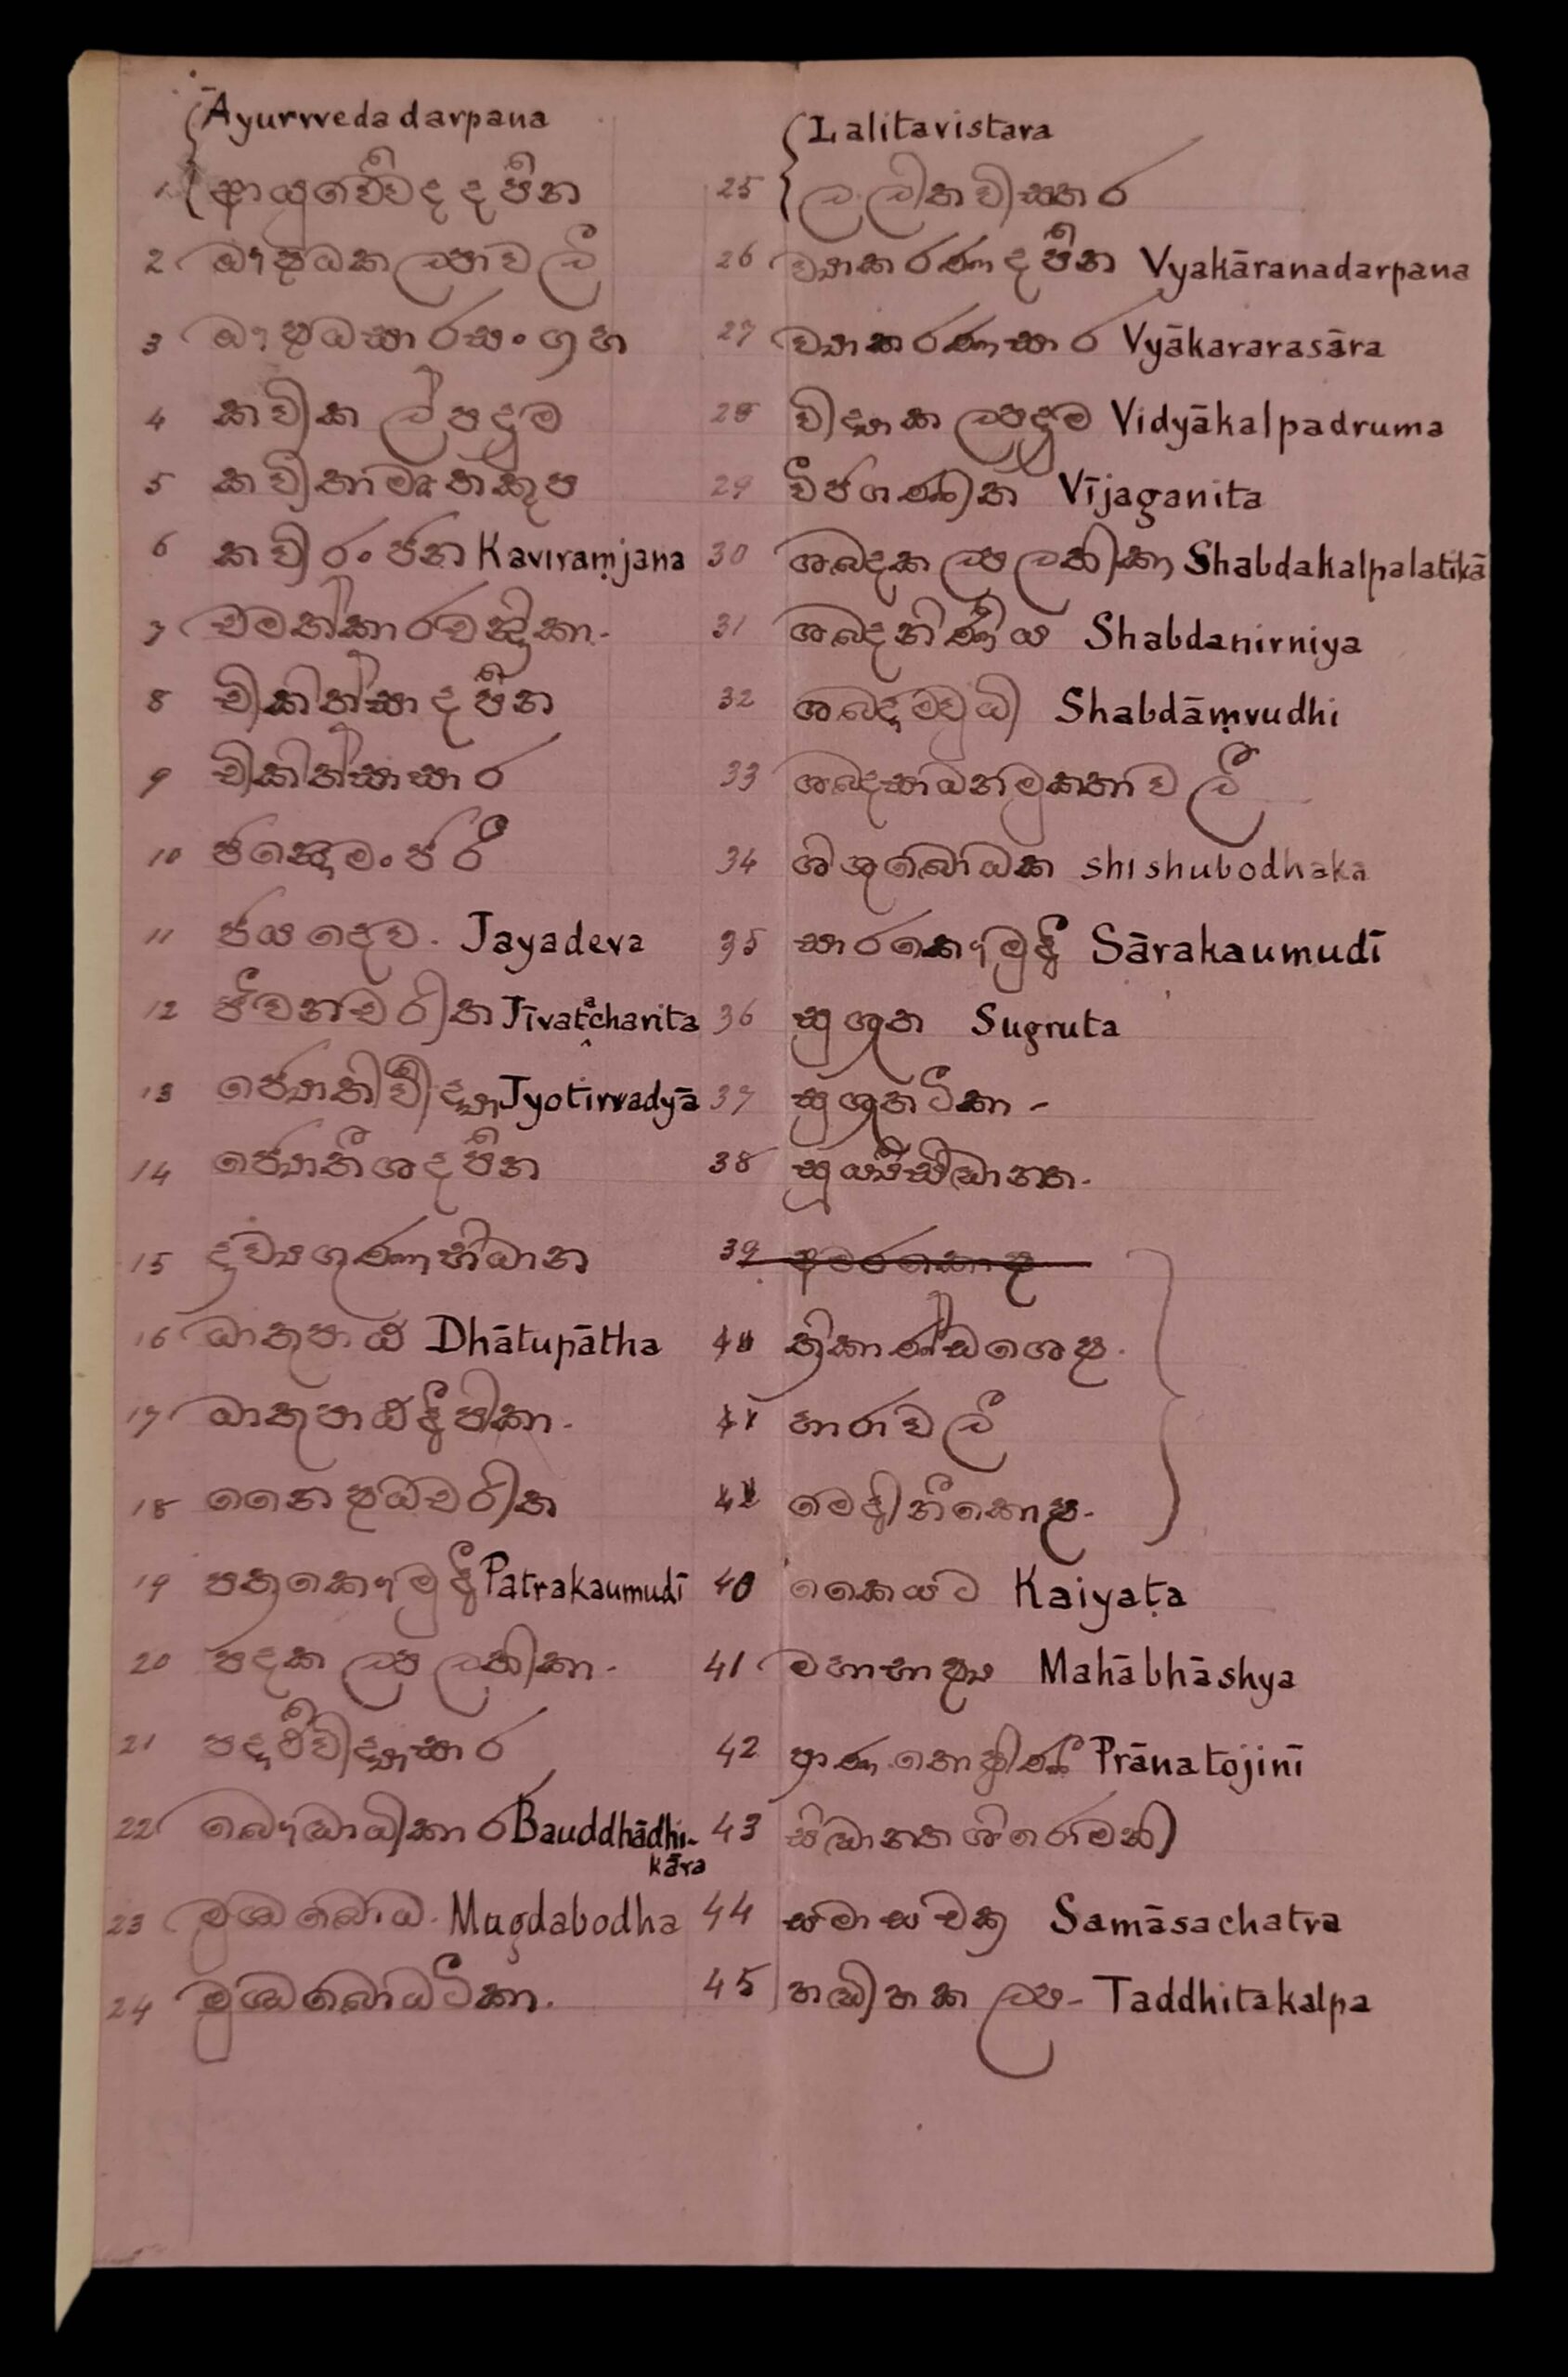 Āyurvveda darpana
1 ආයුර්වේද දර්පන
2 ඖෂධකල්පාවලී
3 ඖෂධසාරසංග්‍රහ
4 කවිකල්පද්‍රුම
5 කවිතාමෘතකූප
6 කවිරංජන Kaviraṃjana
7 චමත්කාරචන්‍ද්‍රිකා-
8 චිකිත්සාදර්පන
9 චිකිත්සාසාර
10 ඡන්‍දොමංජරී
11 ජයදෙව. Jayadeva
12 ජීවන්චරිත Jīvatacharita
13 ජ්‍යොතිර්විද්‍යා Jyotirvadyā
14 ජ්‍යොතීශදර්පන
15 ද්‍රව්‍යගුණාභිධාන
16 ධාතුපාඨ Dhātupātha
17 ධාතුපාඨදීපිකා-
18 නෛෂධචරිත
19 පත්‍රකෞමුදී Patrakaumudī
20 පදකල්පලතිකා-
21 පදාර්ථවිද්‍යාසාර
22 බෞද්ධාධිකාර Bauddhādhi-
kāra
23 මුග්ධබොධ. Mugdabodha
24 මුග්ධබොධටීකා.
Lalitavistara
25 ලලිතවිස්තර
26 ව්‍යාකරණදර්පන Vyakāranadarpana
27 ව්‍යාකරණසාර Vyākararasāra
28 විද්‍යාකල්පද්‍රුම Vidyākalpadruma
29 වීජගණිත Vījaganita
30 ශබ්දකල්පලතිකා Shabdakalpalatikā
31 ශබ්දනිර්ණිය Shabdanirniya
32 ශබ්දාම්වුධි Shabdāṃvudhi
33 ශබ්දසාධන්මුක්තාවලී
34 ශිශුබොධක shishubodhaka
35 සාරකෞමුදී Sārakaumudī
36 සුශ්‍රුත Sugruta
37 සුශ්‍රුතටීකා -
38 සූර්‍ය්‍යසිද්ධාන්ත.
39 අමරකොෂ
40 ත්‍රිකාණ්ඩශෙෂ.
41 හාරාවලී
42 මෙදිනීකොෂ-
40 කෛයට Kaiyaṭa
41 මහාභාෂ්‍ය Mahābhāshya
42 ප්‍රාණතොෂිණී Prānatojinī
43 සිද්ධාන්තශිරොමනි
44 සමාසචක්‍ර Samāsachatra
45 තද්ධිතකල්ප- Taddhitakalpa